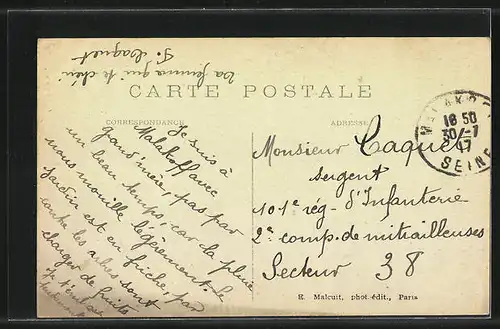 Ta femme qui te chéri
S. Caquet
CARTE POSTALE
CORRESPONDANCE
ADRESSE
Je suis à
Malakoff avec
grand'mère, pas par
un beau temps, car la pluie
nous mouille légèrement. Le
jardin est en friche, par
contre les arbres sont
charger de fruits
Je t'embrasse
Monsieur Caquet
sergent
101e rég. d'Infanterie
2e comp. de mitrailleuses
Secteur 38
MALAKOFF
18 50
30-7
17
SEINE
E. Malcuit, phot. édit., Paris